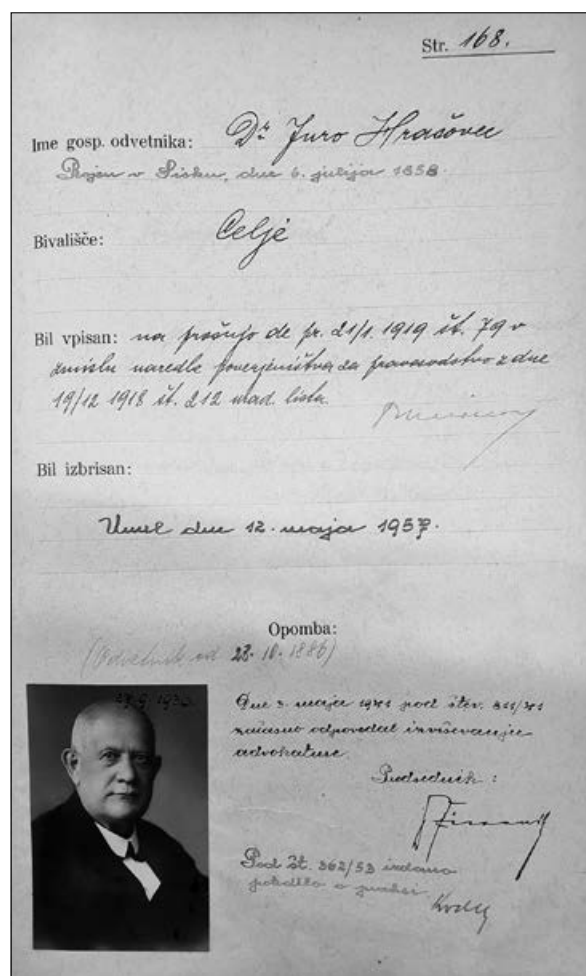 Str. 168.
Ime gosp. odvetnika: Dr Juro Hrašovec
Rojen v Sisku, dne 6. julija 1858
Bivališče: Celje
Bil vpisan: na prošnjo de pr. 21/1. 1919 št. 79 v
zmislu naredbe poverjeništva za pravosodstvo z dne
19/12 1918 št. 212 urad. lista.
Bil izbrisan:
Umrl dne 12. maja 1957.
Opomba:
(Odvetnik od 23. 10. 1886)
Dne 3. maja 1941 pod štev. 311/41
začasno odpovedal izvrševanju
advokature.
Predsednik:
Pod št. 362/53 izdano
potrdilo o praksi